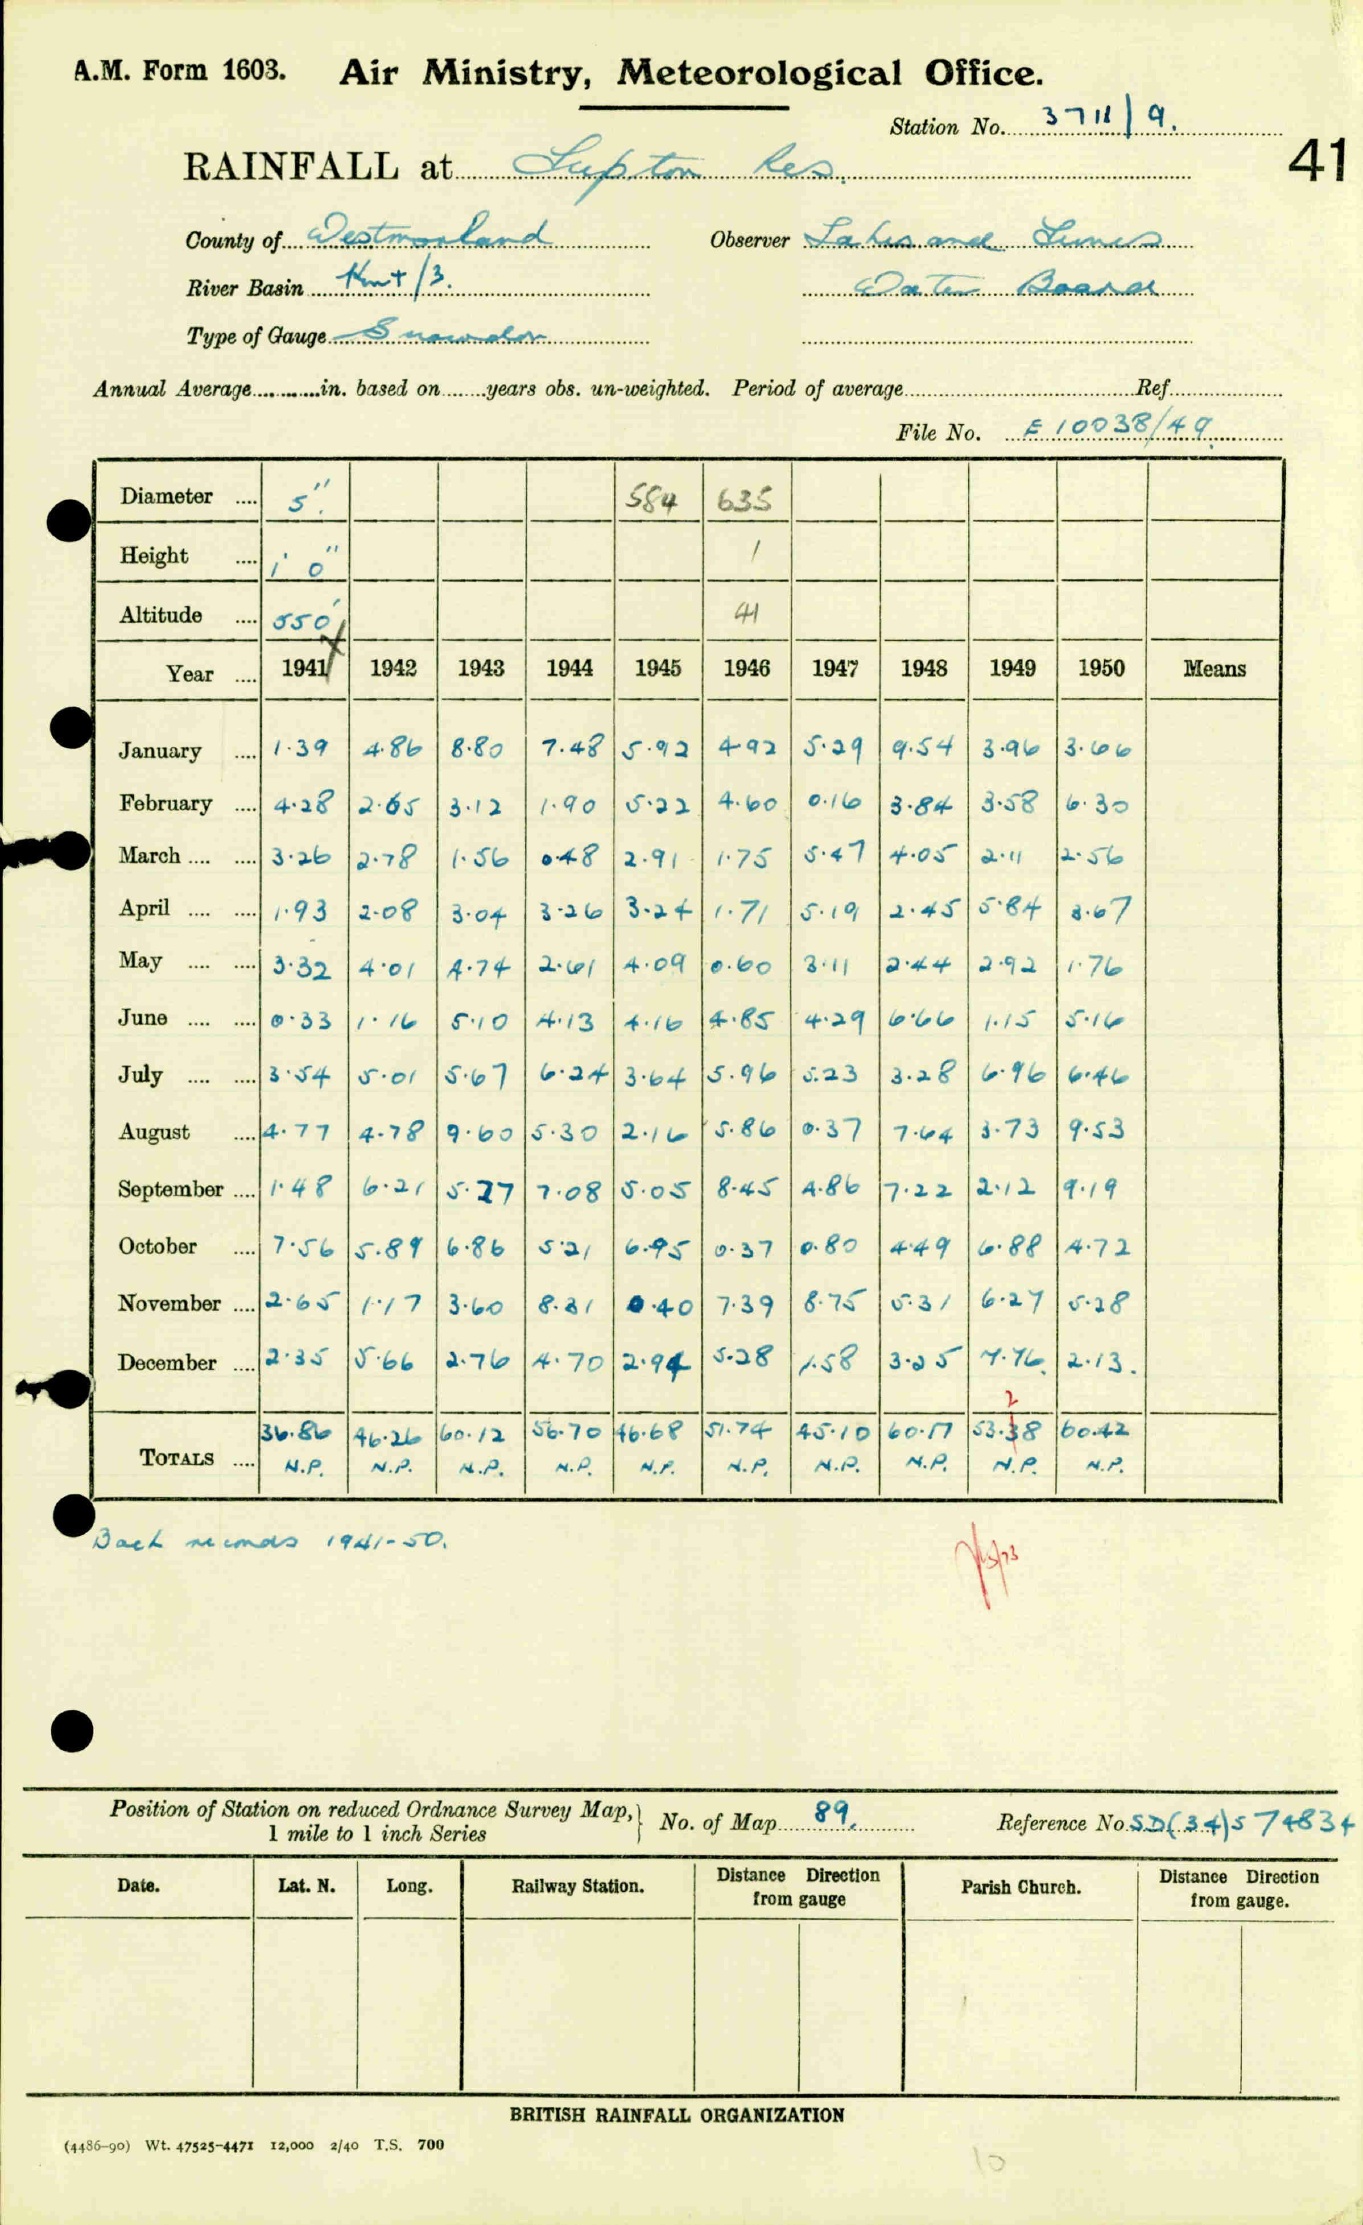 A.M. Form 1603. Air Ministry, Meteorological Office.
Station No. 3711/9.
41
RAINFALL at Lupton Res.
County of Westmorland Observer Lakes and Lunes
River Basin Kent/3. Water Board
Type of Gauge Snowdon
Annual Average............in. based on........years obs. un-weighted. Period of average Ref.
File No. E 10038/49.
Diameter .... 5". 584 635
Height .... 1' 0" 1
Altitude .... 550' 41
Year .... 1941 1942 1943 1944 1945 1946 1947 1948 1949 1950 Means
January .... 1.39 4.86 8.80 7.48 5.92 4.92 5.29 9.54 3.96 3.66
February .... 4.28 2.65 3.12 1.90 5.22 4.60 0.16 3.84 3.58 6.30
March .... .... 3.26 2.78 1.56 0.48 2.91 1.75 5.47 4.05 2.11 2.56
April .... .... 1.93 2.08 3.04 3.26 3.24 1.71 5.19 2.45 5.84 3.67
May .... .... 3.32 4.01 4.74 2.61 4.09 0.60 3.11 2.44 2.92 1.76
June .... .... 0.33 1.16 5.10 4.13 4.16 4.85 4.29 6.66 1.15 5.16
July .... .... 3.54 5.01 5.67 6.24 3.64 5.96 5.23 3.28 6.96 6.46
August .... 4.77 4.78 9.60 5.30 2.16 5.86 0.37 7.64 3.73 9.53
September .... 1.48 6.21 5.27 7.08 5.05 8.45 4.86 7.22 2.12 9.19
October .... 7.56 5.89 6.86 5.21 6.95 0.37 0.80 4.49 6.88 4.72
November .... 2.65 1.17 3.60 8.31 0.40 7.39 8.75 5.31 6.27 5.28
December .... 2.35 5.66 2.76 4.70 2.94 5.28 1.58 3.25 7.76. 2.13.
2
36.86 46.26 60.12 56.70 46.68 51.74 45.10 60.17 53.38 60.42
TOTALS .... N.P. N.P. N.P. N.P. N.P. N.P. N.P. N.P. N.P. N.P.
Back records 1941-50.
Position of Station on reduced Ordnance Survey Map,} No. of Map 89. Reference No. SD(34)574834
1 mile to 1 inch Series
Date. Lat. N. Long. Railway Station. Distance Direction from gauge Parish Church. Distance Direction from gauge.
BRITISH RAINFALL ORGANIZATION
(4486-90) Wt. 47525-4471 12,000 2/40 T.S. 700
10